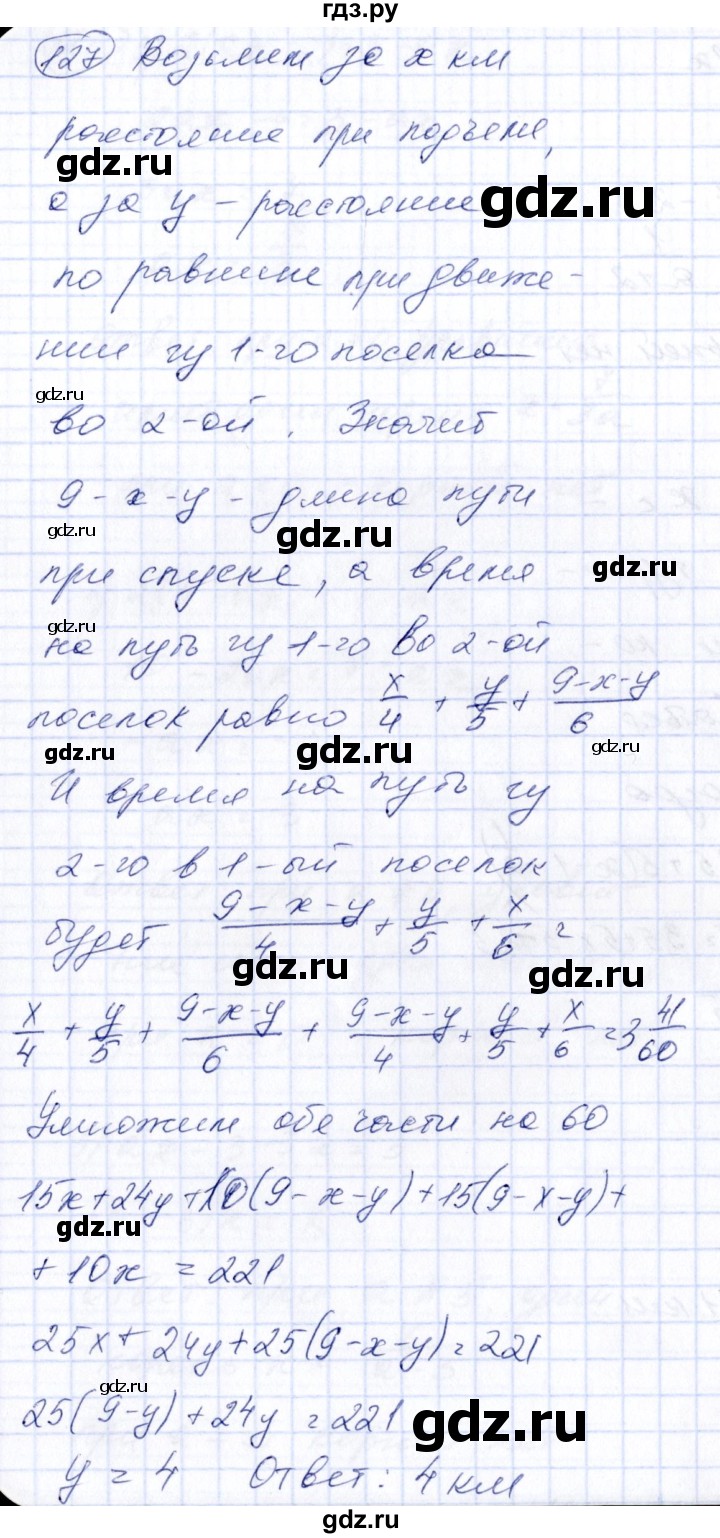 гдз.ру
127 Возьмем за x км
расстояние при подъеме,
gdz.ru
gdz.ru
а за y – расстояние
по равнине при движе-
нии из 1-го поселка
gdz.ru
во 2-ой. Значит
9-x-y - длина пути
gdz.ru
gdz.ru
gdz.ru
при спуске, а время
gdz.ru
на путь из 1-го во 2-ой
поселок равно x/4 + y/5 + (9-x-y)/6
gdz.ru
gdz.ru
И время на путь из
2-го в 1-ый поселок
будет (9-x-y)/4 + y/5 + x/6 =
gdz.ru
gdz.ru
x/4 + y/5 + (9-x-y)/6 + (9-x-y)/4 + y/5 + x/6 = 3 41/60
Умножим обе части на 60
15x+24y+10(9-x-y)+15(9-x-y)+
gdz.ru
+10x = 221
25x+24y+25(9-x-y)=221
gdz.ru
25(9-y)+24y=221
gdz.ru
y = 4 Ответ: 4 км
gdz.ru